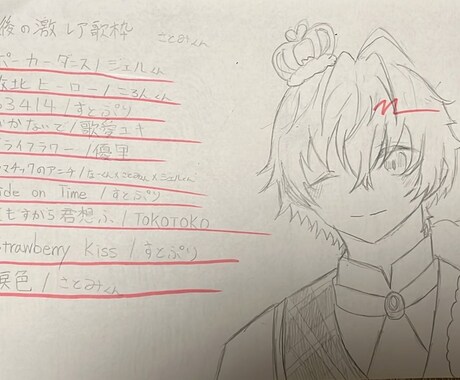 後の激レア歌枠 ことみくん
ポーカーダンス/ジェルくん
敗北ヒーロー/ころんくん
3414/すとぷり
かないで/歌愛ユキ
ライフラワー/優里
マチックのアニキ/なーくん×ことみくん×ジェルくん
ide on Time/すとぷり
もすがら君想ふ/TOKOTOKO
trawberry Kiss/すとぷり
涙色/ことみくん